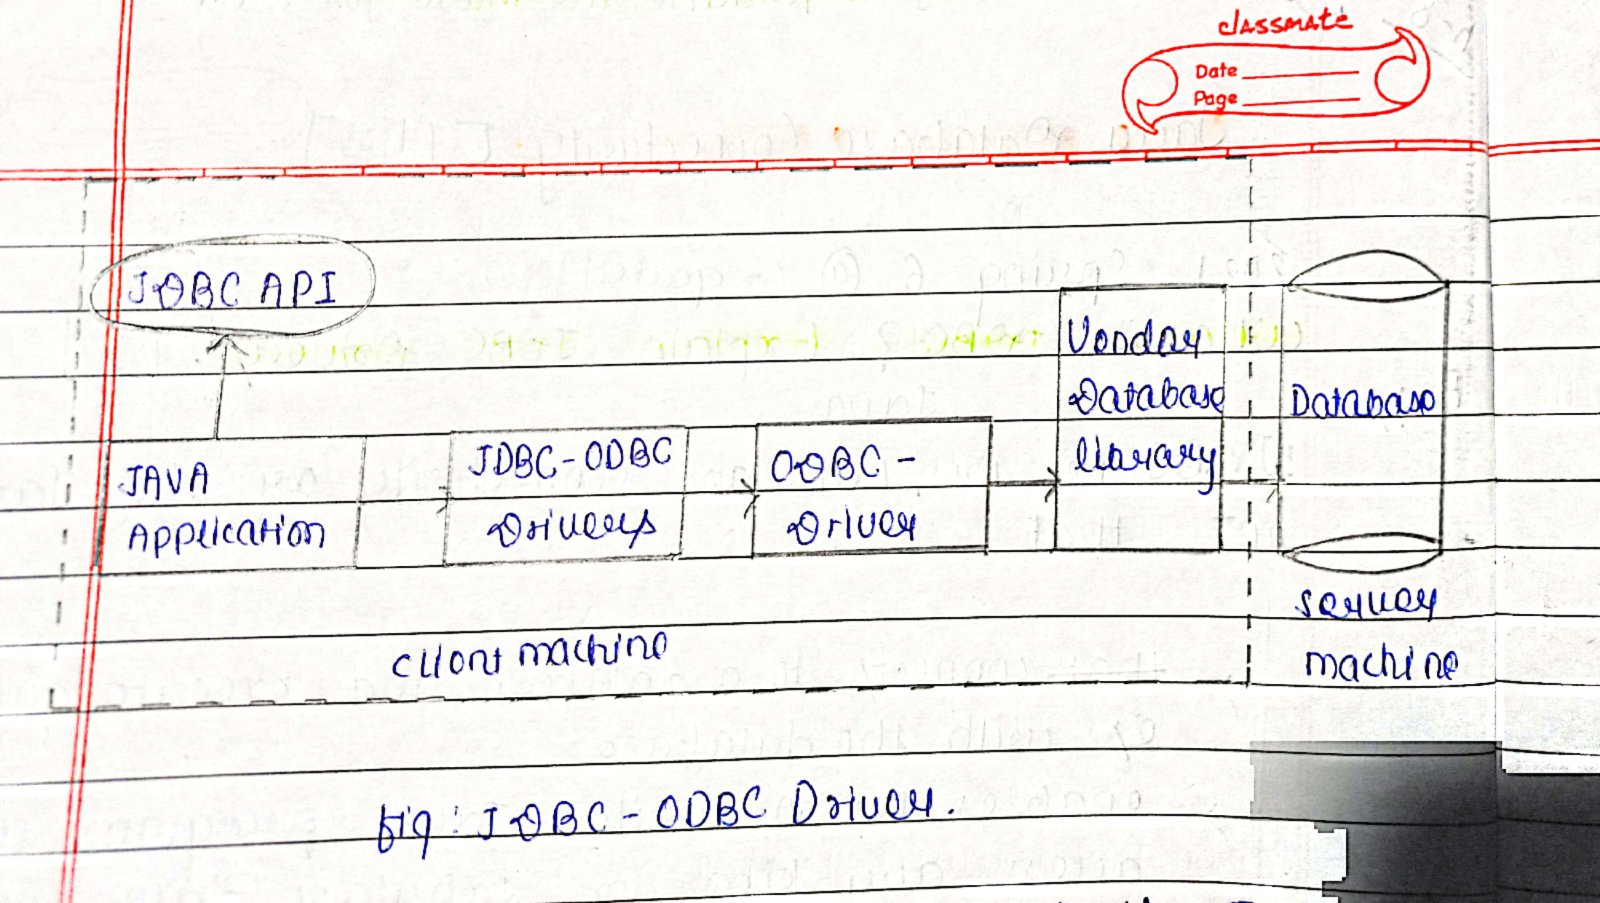 classmate
Date
Page
JDBC API
JAVA
Application
JDBC-ODBC
Drivers
ODBC-
Driver
Vendor
Database
library
Database
Client machine
server
machine
fig: JDBC - ODBC Driver.